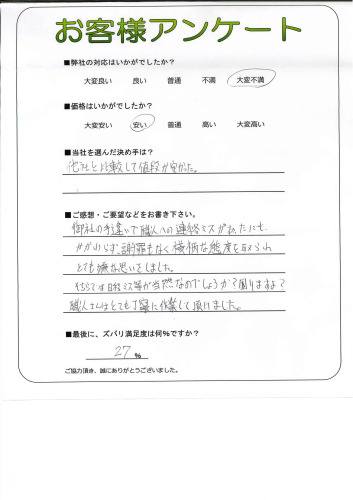 お客様アンケート
■弊社の対応はいかがでしたか？
大変良い 良い 普通 不満 大変不満
■価格はいかがでしたか？
大変安い 安い 普通 高い 大変高い
■当社を選んだ決め手は？
他社と比較して値段が安かった。
■ご感想・ご要望などをお書き下さい。
御社の手違いで職人への連絡ミスがあったにも
かかわらず、謝罪もなく横柄な態度を取られ
とても嫌な思いをしました。
そちらでは日程ミス等が当然なのでしょうか？困りますよ？
職人さんはとても丁寧に作業して頂けました。
■最後に、ズバリ満足度は何%ですか？
27 %
ご協力頂き、誠にありがとうございました。